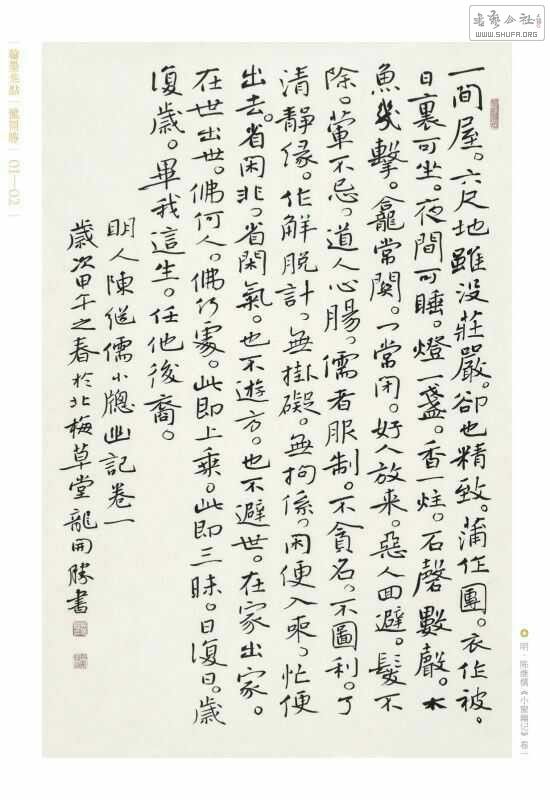 书艺公社
WWW.SHUFA.ORG
一間屋。六尺地雖没莊嚴。卻也精致。蒲作團。衣作被。
日裏可坐。夜間可睡。燈一盞。香一炷。石磬數聲。木
魚幾擊。龕常関。一常闭。好人放来。惡人回避。髮不
除。葷不忌。道人心腸。儒者服制。不貪名。不圖利。了
清静缘。作解脱計。無掛礙。無拘係。闲便入来。忙便
出去。省闲非。省閑氣。也不遊方。也不避世。在家出家。
在世出世。佛何人。佛何處。此即上乘。此即三昧。日復日。歲
復歲。畢我這生。任他後裔。
明人陳继儒小牕幽記卷一
歲次甲午之春於北梅草堂龍開勝書
明·陈继儒《小窗幽记》卷一
翰墨焦點｜龍開勝｜01—02